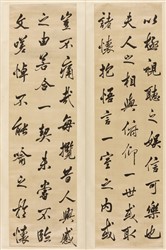 以極視聽之娛信可樂
夫人之相與俯仰一世或取
諸懷抱悟言一室之內或
豈不痛哉每攬昔人興感
之由若合一契未嘗不臨
文嗟悼不能喻之於懷